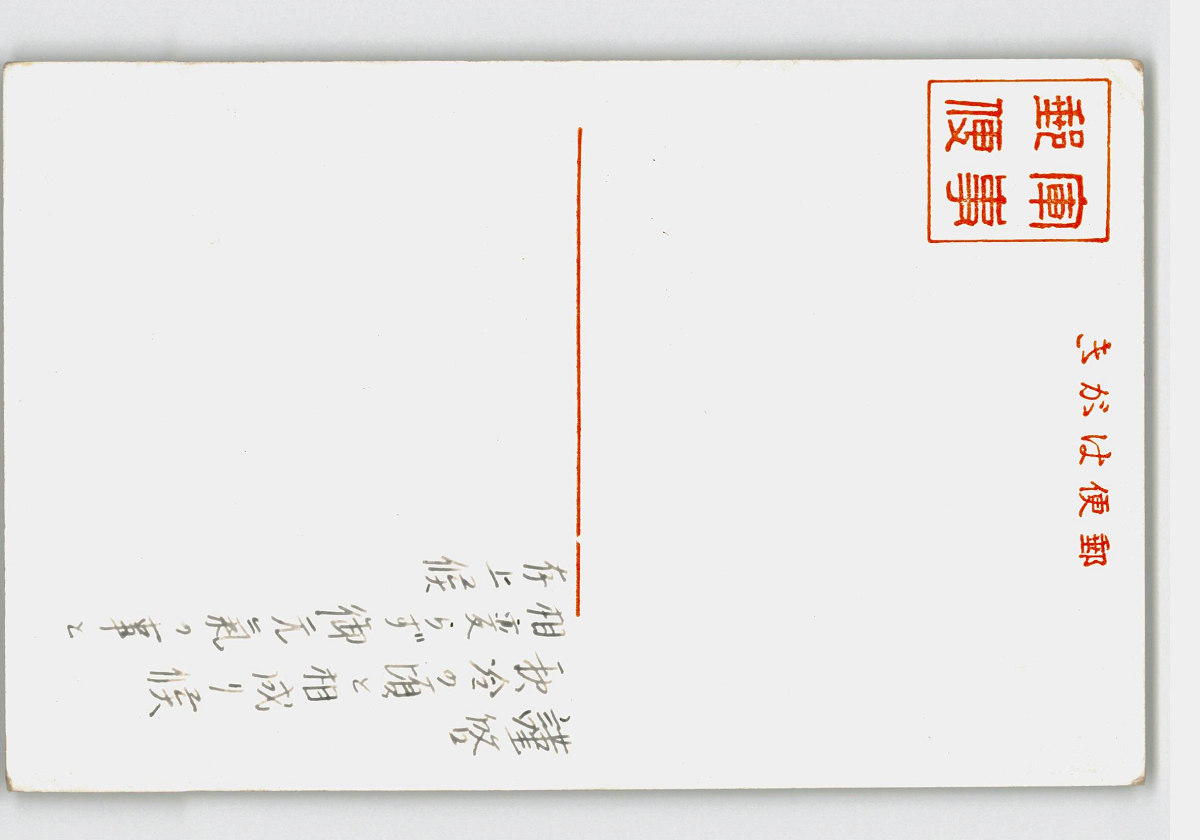 軍事
郵便
郵便はがき
謹啓
秋冷の頃と相成り候
相変らず御元氣の事と
存上候